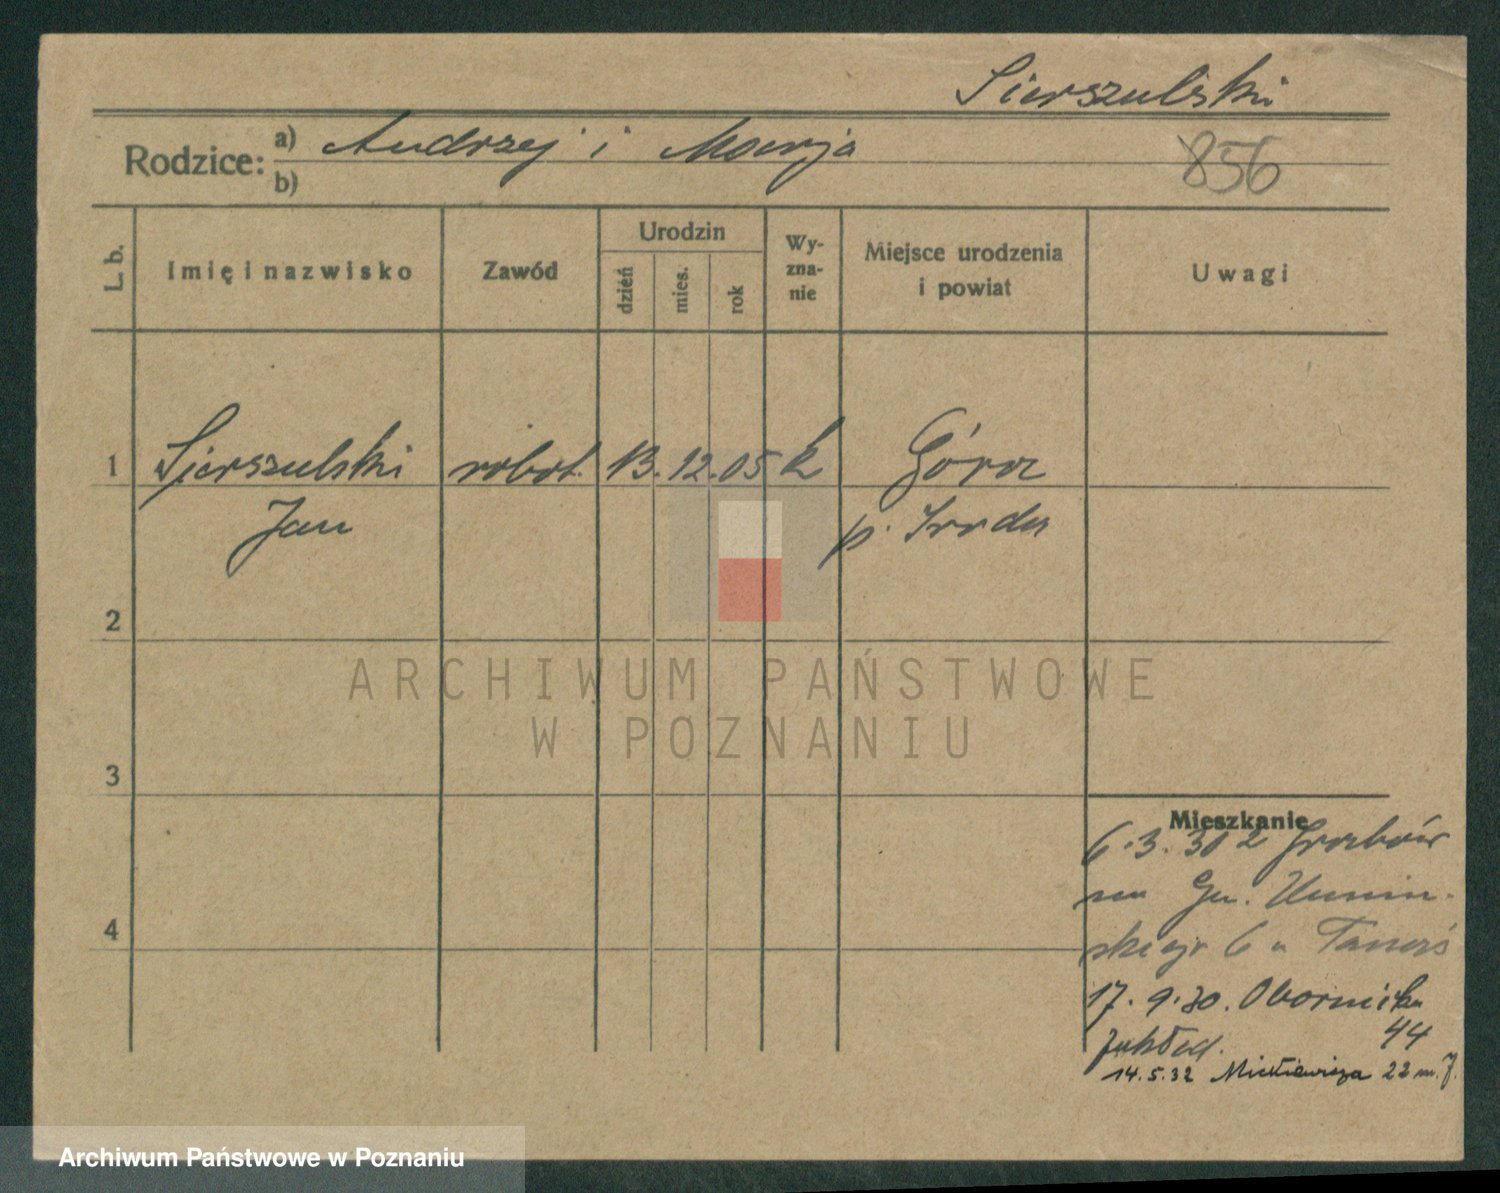 Sierszulski
Rodzice: a) Andrzej i Marja
b)
856
L. b.
Imię i nazwisko
Zawód
Urodzin
dzień
mies.
rok
Wy-
zna-
nie
Miejsce urodzenia
i powiat
Uwagi
1 Sierszulski robot. 13. 12. 05 k Góra
Jan p. Środa
2
3
4
Mieszkanie
6.3.30 z
na Gen. Umiń-
skiego 6 u
17.9.30. Obornicka
44
14.5.32 Mickiewicza 22 m. 7.
ARCHIWUM PAŃSTWOWE
W POZNANIU
Archiwum Państwowe w Poznaniu